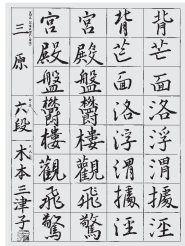 背芒面洛浮渭據涇
背芒面洛浮渭據涇
宮殿盤欝樓觀飛驚
宮殿盤欝樓觀飛驚
三原 六段 木本三津子